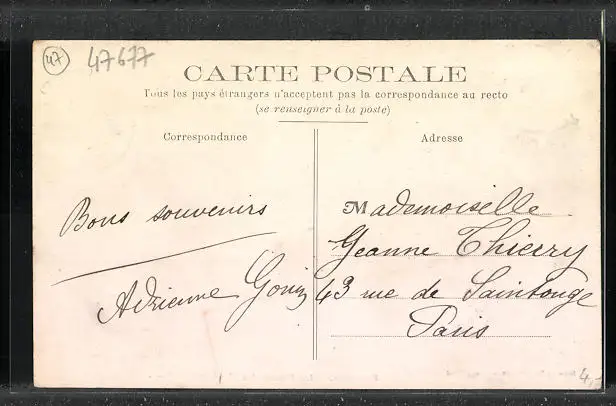 47
47677
CARTE POSTALE
Tous les pays étrangers n'acceptent pas la correspondance au recto
(se renseigner à la poste)
Correspondance
Adresse
Bons souvenirs
Adrienne
Mademoiselle
Jeanne Thierry
43 rue de Saintonge
Paris